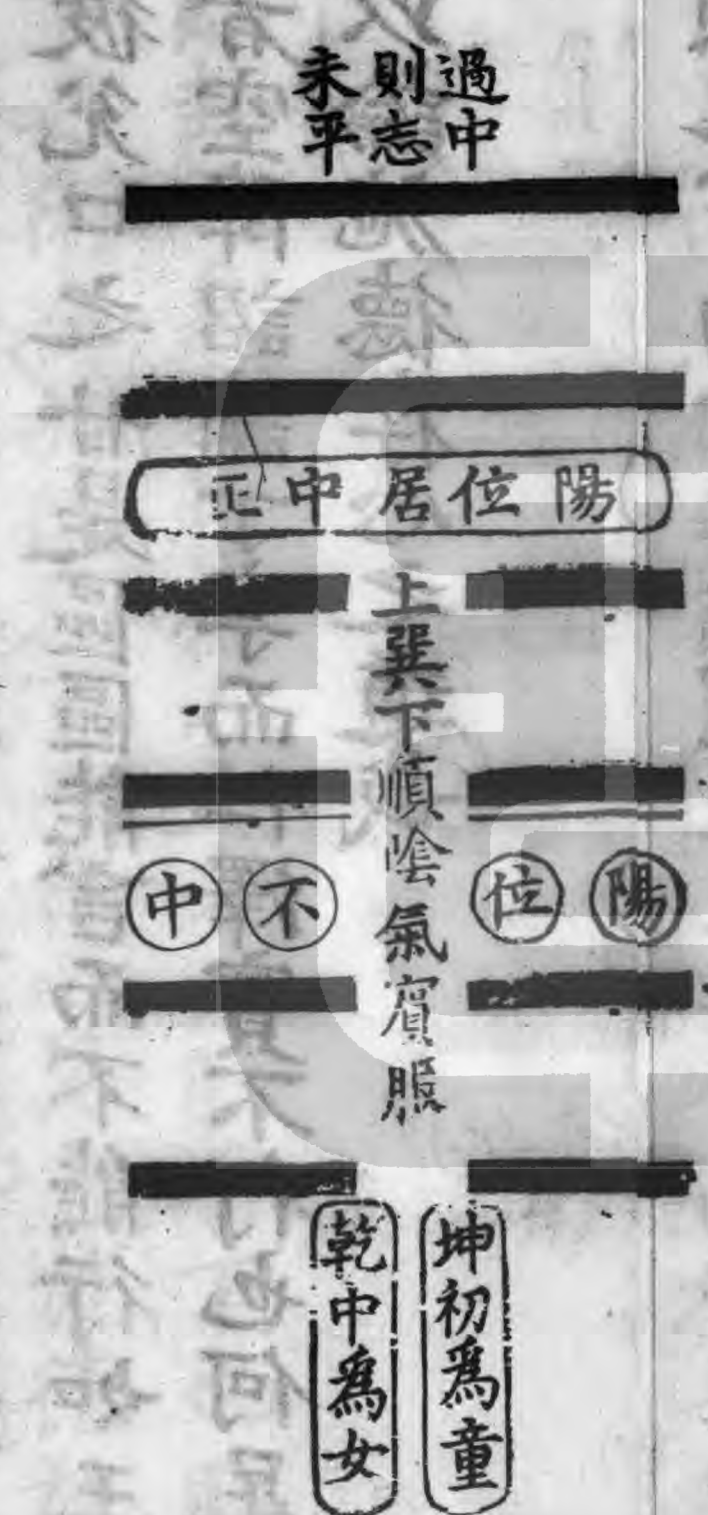 過中
則志
未平
陽位居中正
上巽下順陰氣賓服
陽位不中
坤初爲童
乾中爲女